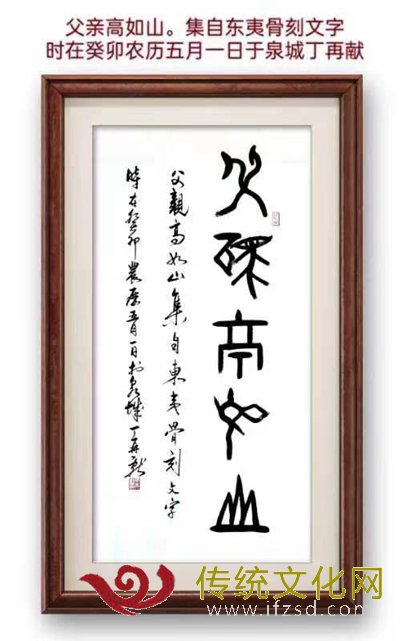 父亲高如山。集自东夷骨刻文字
时在癸卯农历五月一日于泉城丁再献
父親高如山
父親高如山集自東夷骨刻文字
時在癸卯農歷五月一日於泉城丁再獻
传统文化网
www.ifzsd.com